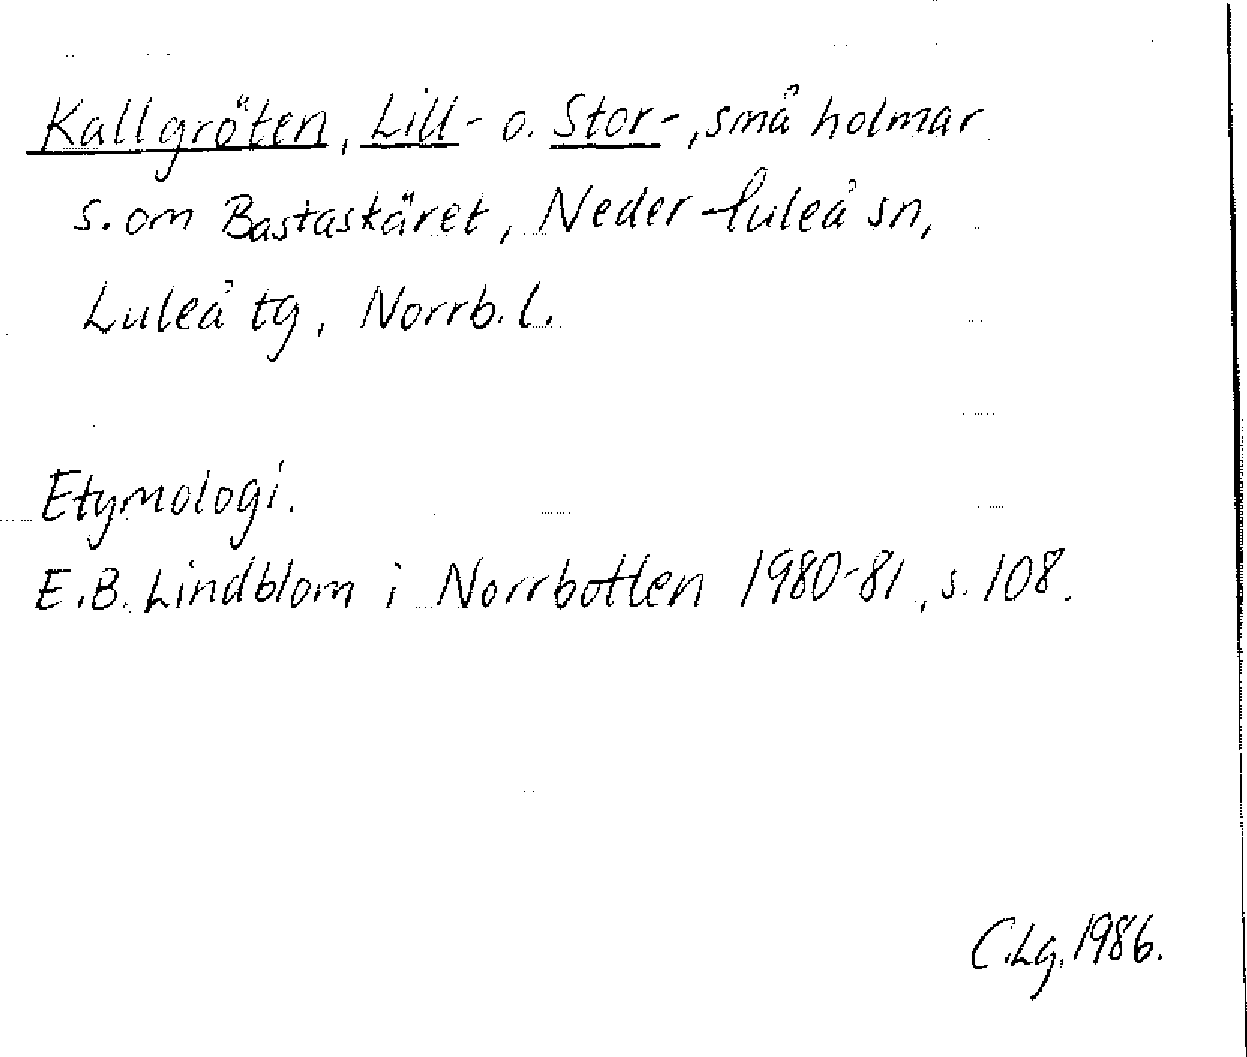 Kallgröten, Lill- o. Stor-, små holmar
s. om Bastaskäret, Neder-luleå sn,
Luleå tg, Norrb. l.
Etymologi.
E.B. Lindblom i Norrbotten 1980-81, s. 108.
C.Lg. 1986.